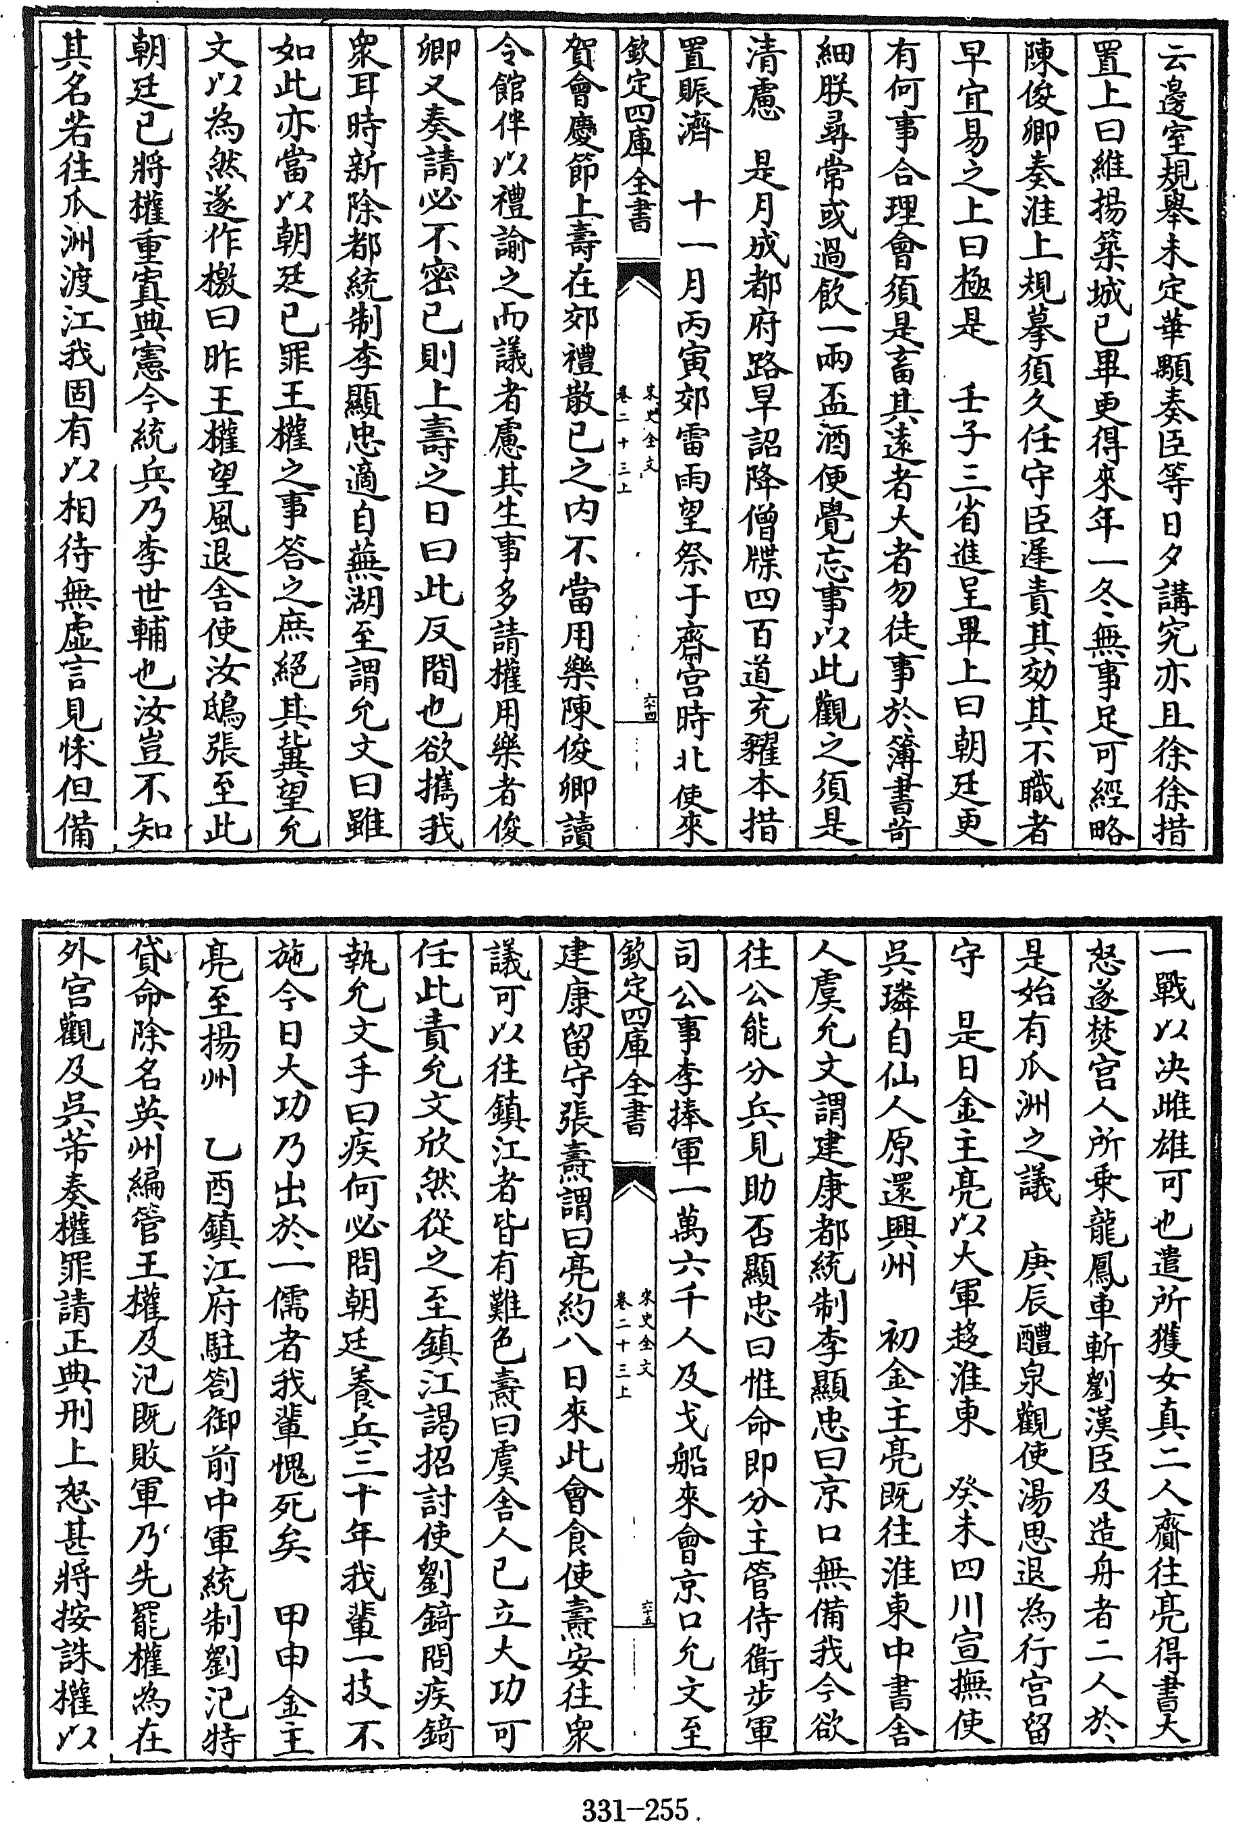 云邊室規舉未定華顯奏臣等日夕講究亦且徐徐措
置上曰維揚築城已畢更得來年一冬無事足可經略
陳俊卿奏淮上規摹須久任守臣遲責其効其不職者
早宜易之上曰極是　壬子三省進呈畢上曰朝廷更
有何事合理會須是畜其遠者大者勿徒事於簿書苛
細朕尋常或過飲一兩盃酒便覺忘事以此觀之須是
清慮　是月成都府路旱詔降僧牒四百道充糴本措
置賑濟　十一月丙寅郊雷雨望祭于齋宮時北使來
欽定四庫全書
宋史全文
卷二十三上
六十四
賀會慶節上壽在郊禮散已之内不當用樂陳俊卿請
令館伴以禮諭之而議者慮其生事多請權用樂者俊
卿又奏請必不密已則上壽之日曰此反間也欲攜我
衆耳時新除都統制李顯忠適自蕪湖至謂允文曰雖
如此亦當以朝廷已罪王權之事答之庶絕其冀望允
文以為然遂作檄曰昨王權望風退舍使汝鴟張至此
朝廷已將權重寘典憲今統兵乃李世輔也汝豈不知
其名若往瓜洲渡江我固有以相待無虛言見怵但備
一戰以决雌雄可也遣所獲女真二人齎往亮得書大
怒遂焚宮人所乘龍鳳車斬劉漢臣及造舟者二人於
是始有瓜洲之議　庚辰醴泉觀使湯思退為行宮留
守　是日金主亮以大軍趍淮東　癸未四川宣撫使
吳璘自仙人原還興州　初金主亮既往淮東中書舍
人虞允文謂建康都統制李顯忠曰京口無備我今欲
往公能分兵見助否顯忠曰惟命即分主管侍衛步軍
司公事李捧軍一萬六千人及戈船來會京口允文至
欽定四庫全書
宋史全文
卷二十三上
六十五
建康留守張燾謂曰亮約八日來此會食使燾安往衆
議可以往鎮江者皆有難色燾曰虞舍人已立大功可
任此責允文欣然從之至鎮江謁招討使劉錡問疾錡
執允文手曰疾何必問朝廷養兵三十年我輩一技不
施今日大功乃出於一儒者我輩愧死矣　甲申金主
亮至揚州　乙酉鎮江府駐劄御前中軍統制劉汜特
貸命除名英州編管王權及汜既敗軍乃先罷權為在
外宮觀及吳芾奏權罪請正典刑上怒甚將按誅權以
331-255.